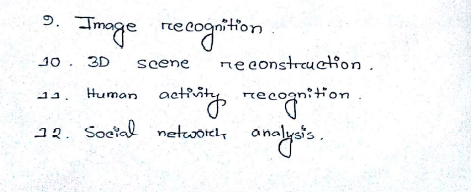 9. Image recognition.
10. 3D scene reconstruction.
11. Human activity recognition.
12. Social network analysis.